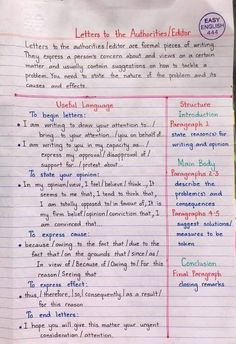 EASY
ENGLISH
444
Letters to the Authorities/Editor
Letters to the authorities/editor are formal pieces of writing.
They express a person's concern about and views on a certain
matter and usually contain suggestions on how to tackle a
problem. You need to state the nature of the problem and its
causes and effects.
Useful Language
To begin letters:
I am writing to draw your attention to.../
bring to your attention.../you on behalf of...
I am writing to you in my capacity as.../
express my approval/disapproval of/
support for.../protest about...
To state your opinion:
In my opinion/view, I feel/believe/think..., It
seems to me that, I tend to think that,
I am totally opposed to/in favour of, It is
my firm belief/opinion/conviction that, I
am convinced that...
To express cause:
because/owing to the fact that/due to the
fact that/on the grounds that/since/as/
In view of/Because of/Owing to/For this
reason/Seeing that
To express effect:
thus,/therefore,/so,/consequently,/as a result/
for this reason
To end letters:
I hope you will give this matter your urgent
consideration/attention.
Structure
Introduction
Paragraph 1
state reason(s) for
writing and opinion
Main Body
Paragraphs 2-3
describe the
problem(s) and
consequences
Paragraphs 4-5
suggest solutions/
measures to be
taken
Conclusion
Final Paragraph
closing remarks